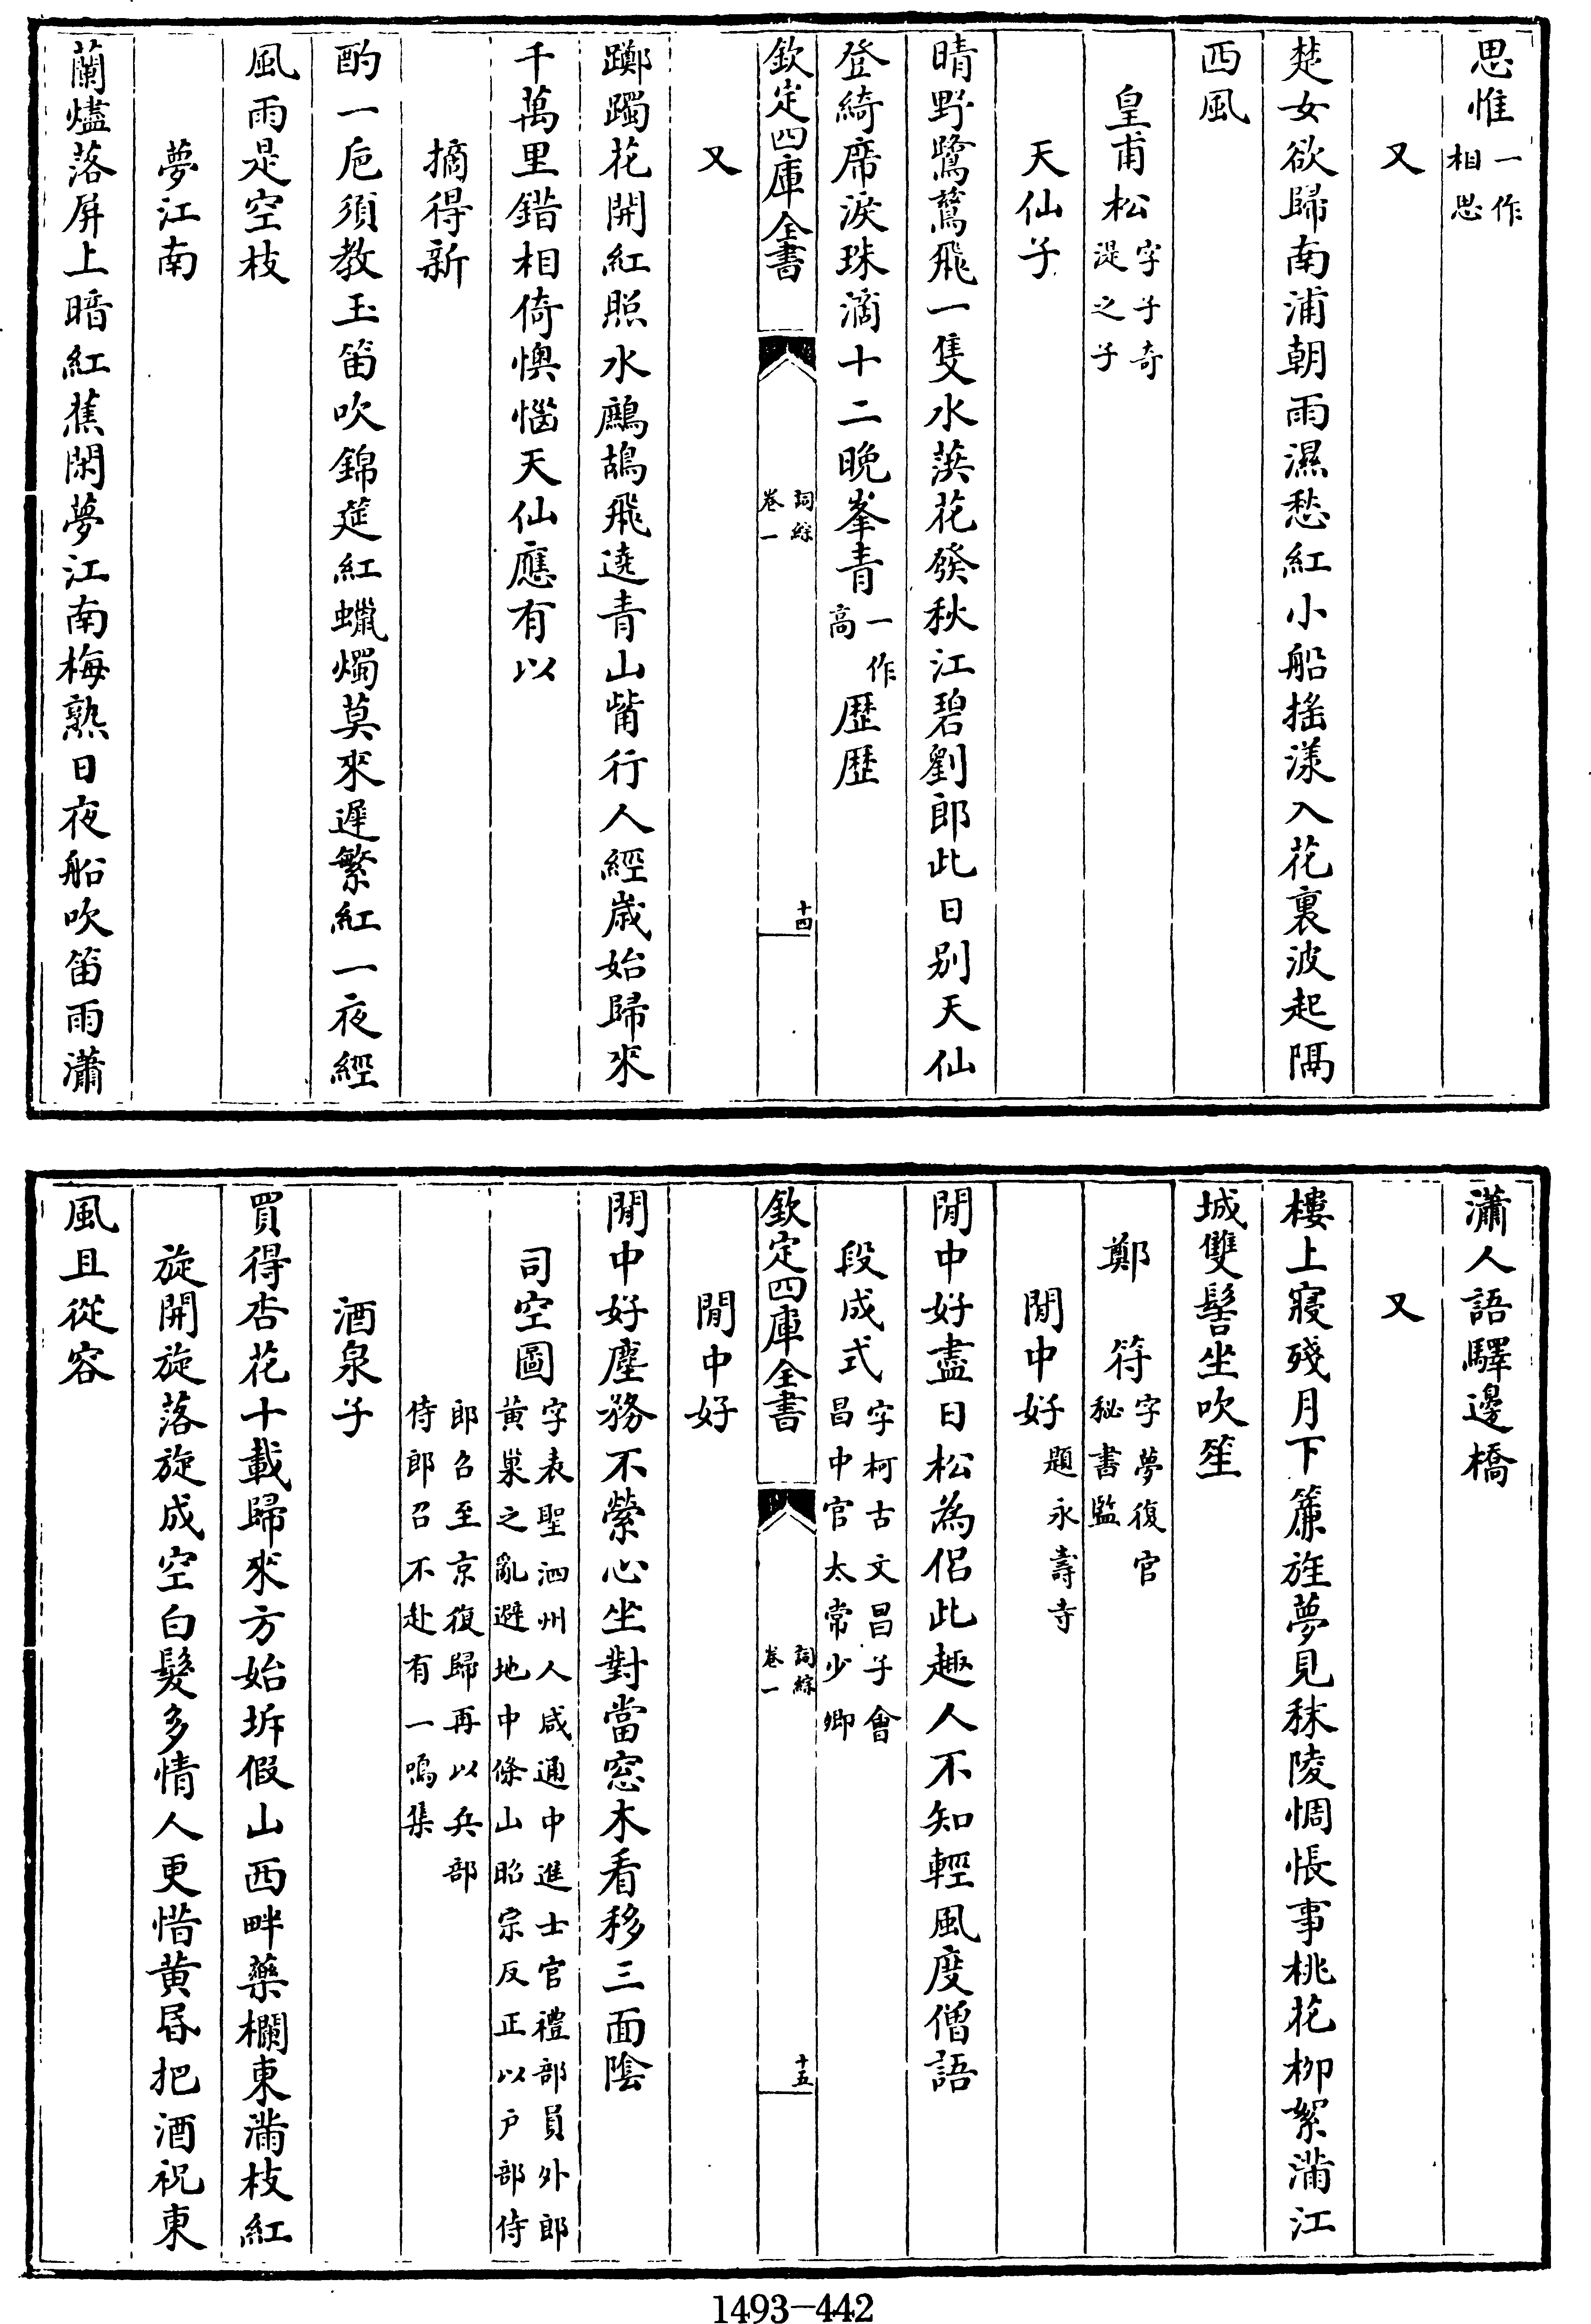 思惟一作相思
又
楚女欲歸南浦朝雨濕愁紅小船搖漾入花裏波起隔
西風
皇甫松字子奇湜之子
天仙子
晴野鷺鷥飛一隻水葓花發秋江碧劉郎此日别天仙
登綺席淚珠滴十二晚峯青一作高歷歷
欽定四庫全書
詞綜
卷一
十四
又
躑躅花開紅照水鷓鴣飛遶青山觜行人經歲始歸來
千萬里錯相倚懊惱天仙應有以
摘得新
酌一巵須教玉笛吹錦筵紅蠟燭莫來遲繁紅一夜經
風雨是空枝
夢江南
蘭燼落屏上暗紅蕉閑夢江南梅熟日夜船吹笛雨瀟
瀟人語驛邊橋
又
樓上寢殘月下簾旌夢見秣陵惆悵事桃花柳絮滿江
城雙髻坐吹笙
鄭符字夢復官秘書監
閒中好題永壽寺
閒中好盡日松為侣此趣人不知輕風度僧語
段成式字柯古文昌子會昌中官太常少卿
欽定四庫全書
詞綜
卷一
十五
閒中好
閒中好塵務不縈心坐對當窓木看移三面陰
司空圖字表聖泗州人咸通中進士官禮部員外郎黄巢之亂避地中條山昭宗反正以户部侍
郎召至京復歸再以兵部侍郎召不赴有一鳴集
酒泉子
買得杏花十載歸來方始坼假山西畔藥欄東滿枝紅
旋開旋落旋成空白髮多情人更惜黄昬把酒祝東
風且從容
1493-442